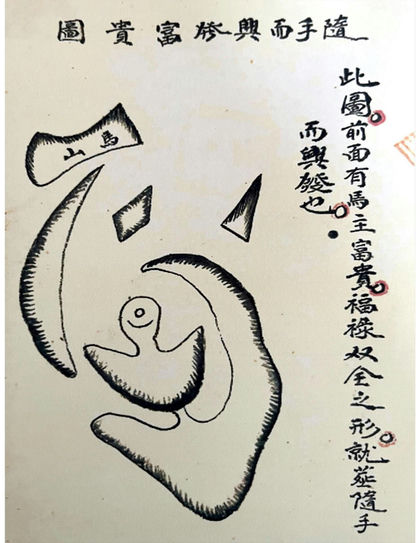 隨手而興發富貴圖
此圖前面有馬主富貴福祿双全之形就葬隨手
而興發也
馬山